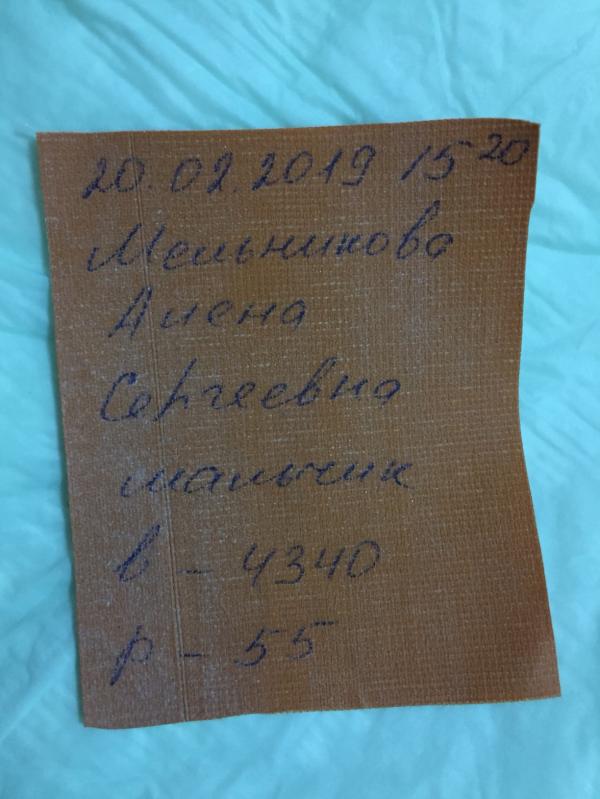 20.02.2019 15 20
Мельникова
Алена
Сергеевна
мальчик
в - 4340
р - 55